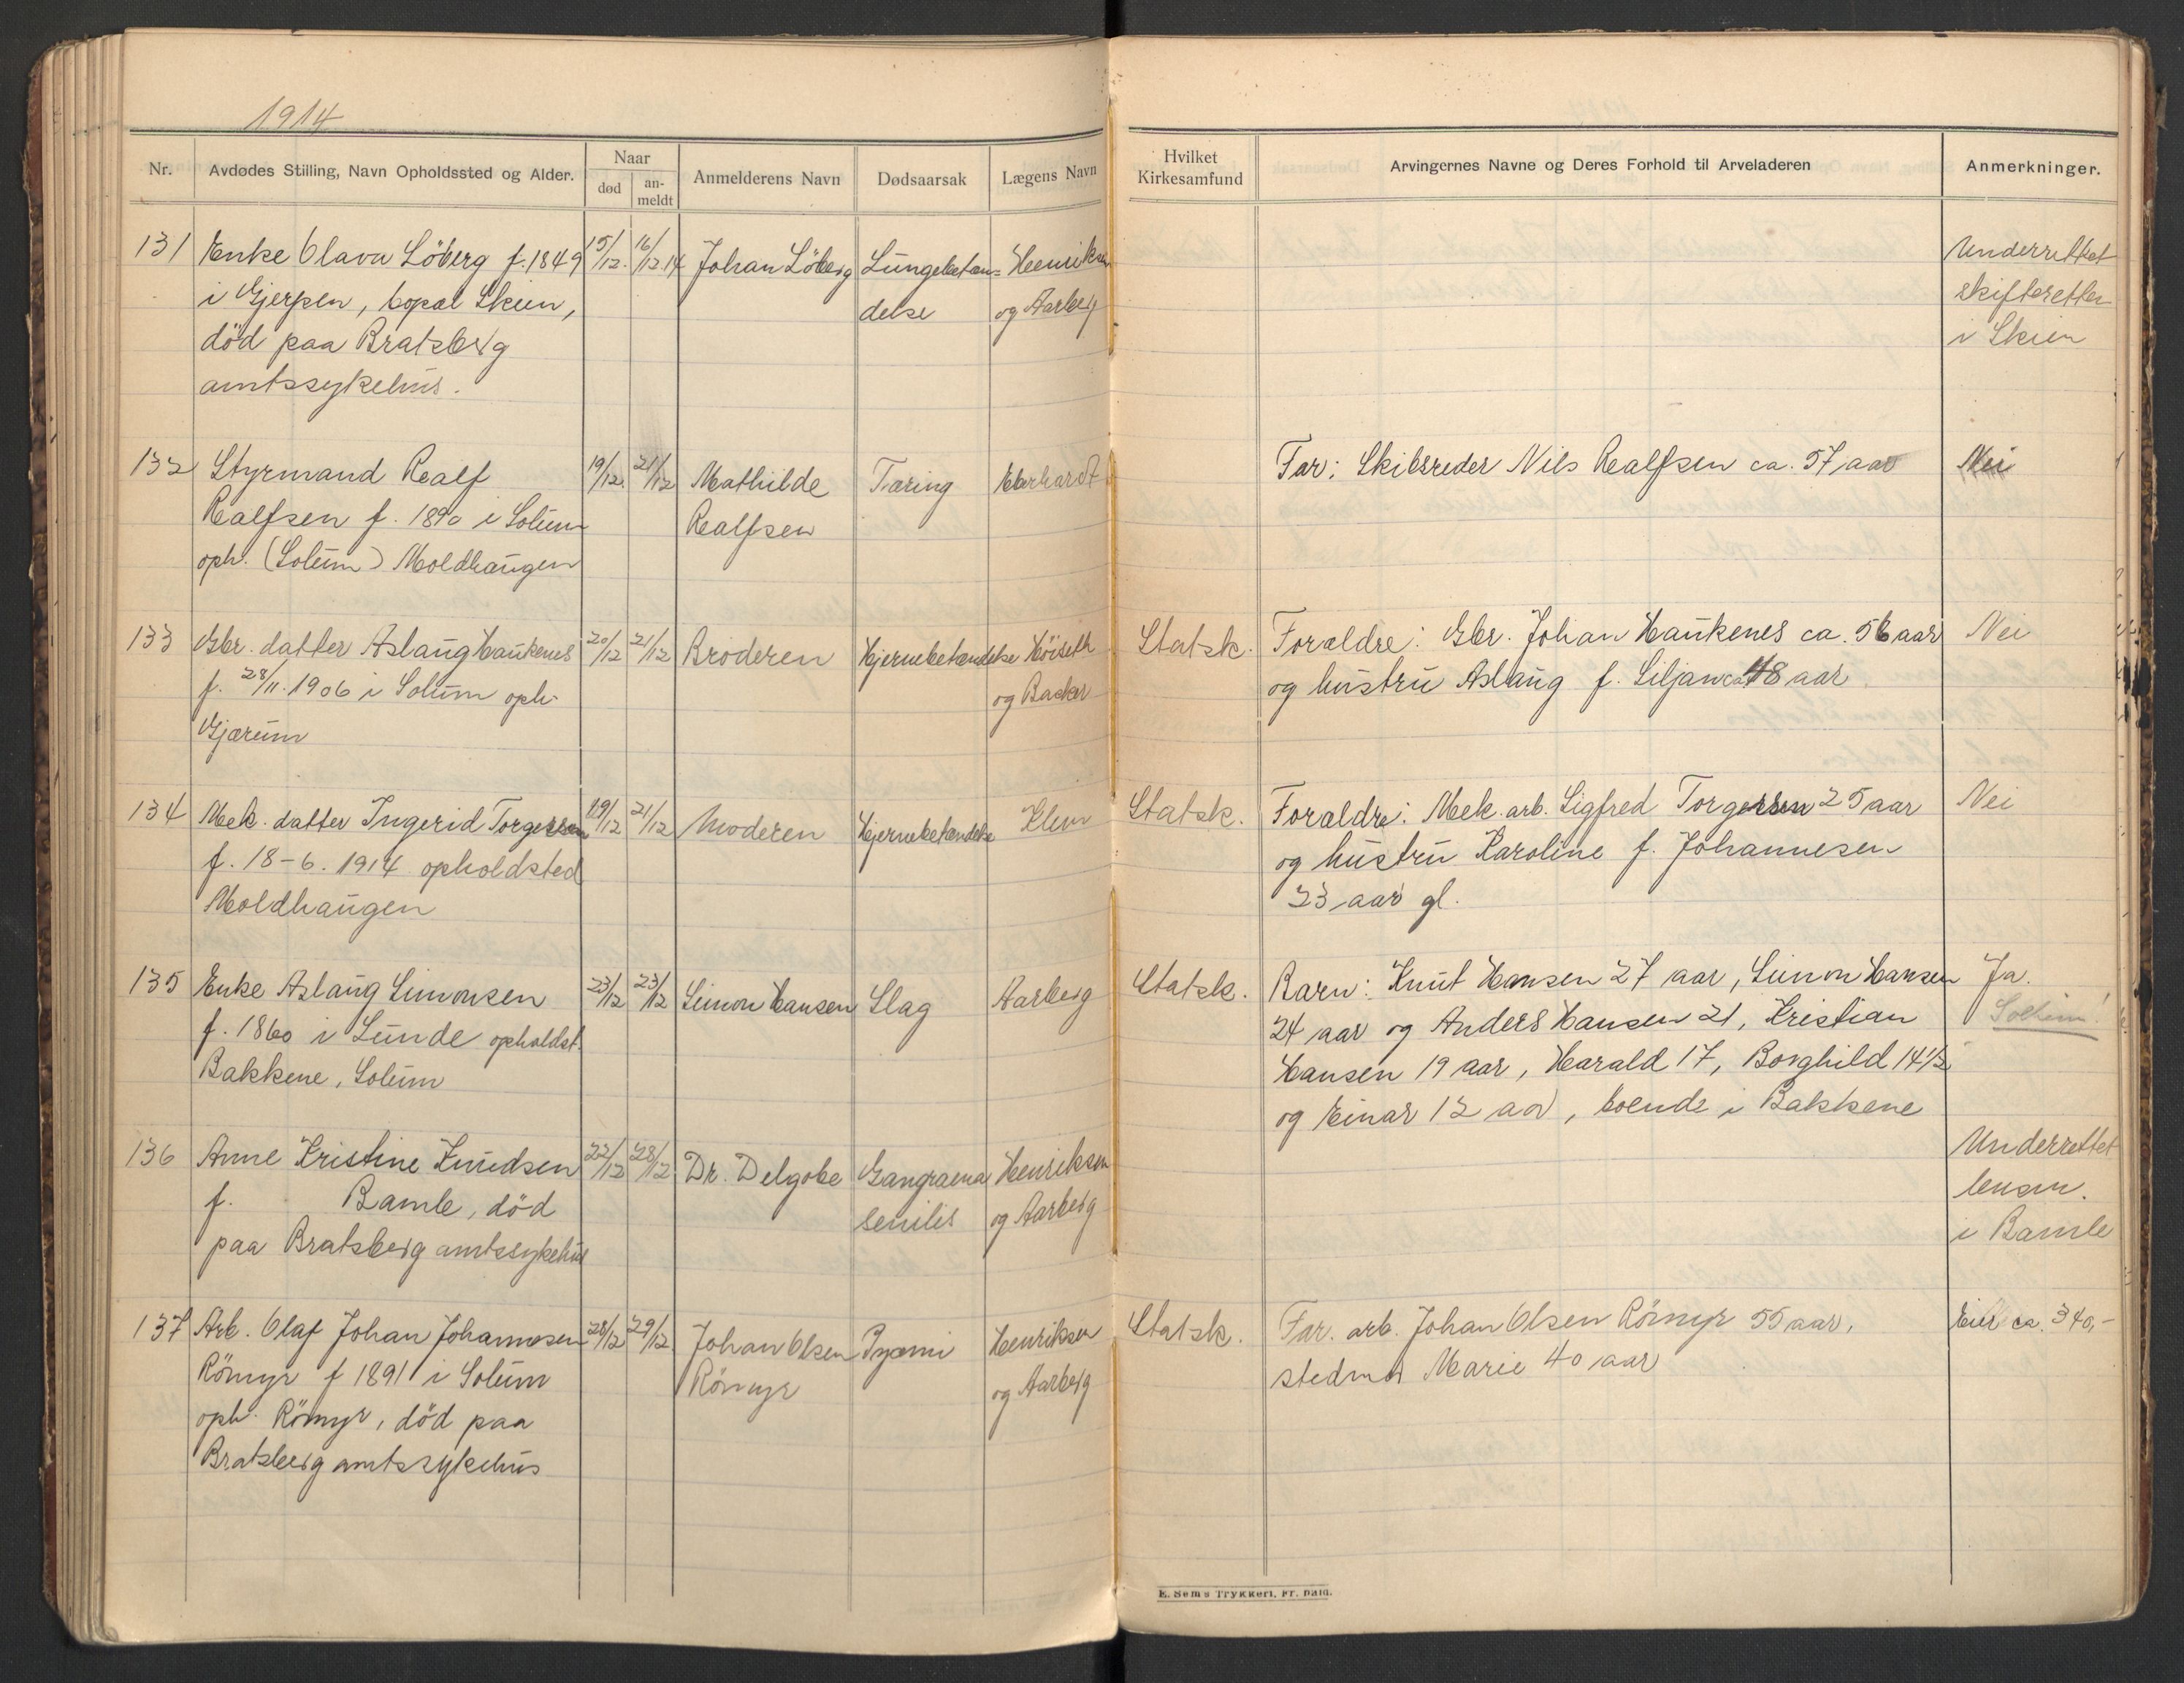 1914
Nr.
Avdødes Stilling, Navn Opholdssted og Alder.
Naar
død
an-
meldt
Anmelderens Navn
Dødsaarsak
Lægens Navn
Hvilket
Kirkesamfund
Arvingernes Navne og Deres Forhold til Arveladeren
Anmerkninger.
131 Enke Olava Löberg f. 1849 15/12. 16/12.14 Johan Löberg Lungebetæn= Henriksen Underrettet
i Gjerpen, bopæl Skien, delse og Aarberg skifteretten
död paa Bratsberg i Skien
amtssykehus.
132 Styrmand Realf 19/12. 21/12 Mathilde Tæring Eberhardt Far: Skibsreder Nils Realfsen ca. 57 aar Nei
Realfsen f. 1890 i Solum Realfsen
oph. (Solum) Moldhaugen
133 Gbr. datter Aslaug Haukenes 20/12 21/12 Broderen Hjernebetændelse Höiseth Statsk. Forældre: Gbr. Johan Haukenes ca. 56 aar Nei
f. 28/11. 1906 i Solum oph. og Backer og hustru Aslaug f. Siljan ca 48 aar
Gjærum
134 Mek. datter Ingerid Torgersen 19/12 21/12 Moderen Hjernebetændelse Klem Statsk. Forældre: Mek. arb. Sigfred Torgersen 25 aar Nei
f. 18-6. 1914 opholdsted og hustru Karoline f. Johannesen
Moldhaugen 23 aar gl.
135 Enke Aslaug Simonsen 23/12 23/12 Simon Hansen Slag Aarberg Statsk. Barn: Knut Hansen 27 aar, Simon Hansen Ja.
f. 1860 i Lunde opholdst. 24 aar og Anders Hansen 21, Kristian Solum!
Bakkene, Solum Hansen 19 aar, Harald 17, Borghild 14 1/2
og Einar 12 aar, boende i Bakkene
136 Anne Kristine Knudsen 22/12 28/12 Dr. Delgobe Gangraena Henriksen Underrettet
f. Bamle, död senilis og Aarberg lensm.
paa Bratsberg amtssykehus i Bamle
137 Arb. Olaf Johan Johannesen 28/12 29/12 Johan Olsen Pyæmi Henriksen Statsk. Far. arb. Johan Olsen Römyr 55 aar. Eier ca. 340,-
Römyr f 1891 i Solum Römyr og Aarberg stedmor Marie 40 aar
oph. Römyr, död paa
Bratsberg amtssykehus
E. Sem's Trykkeri, Fr. hald.